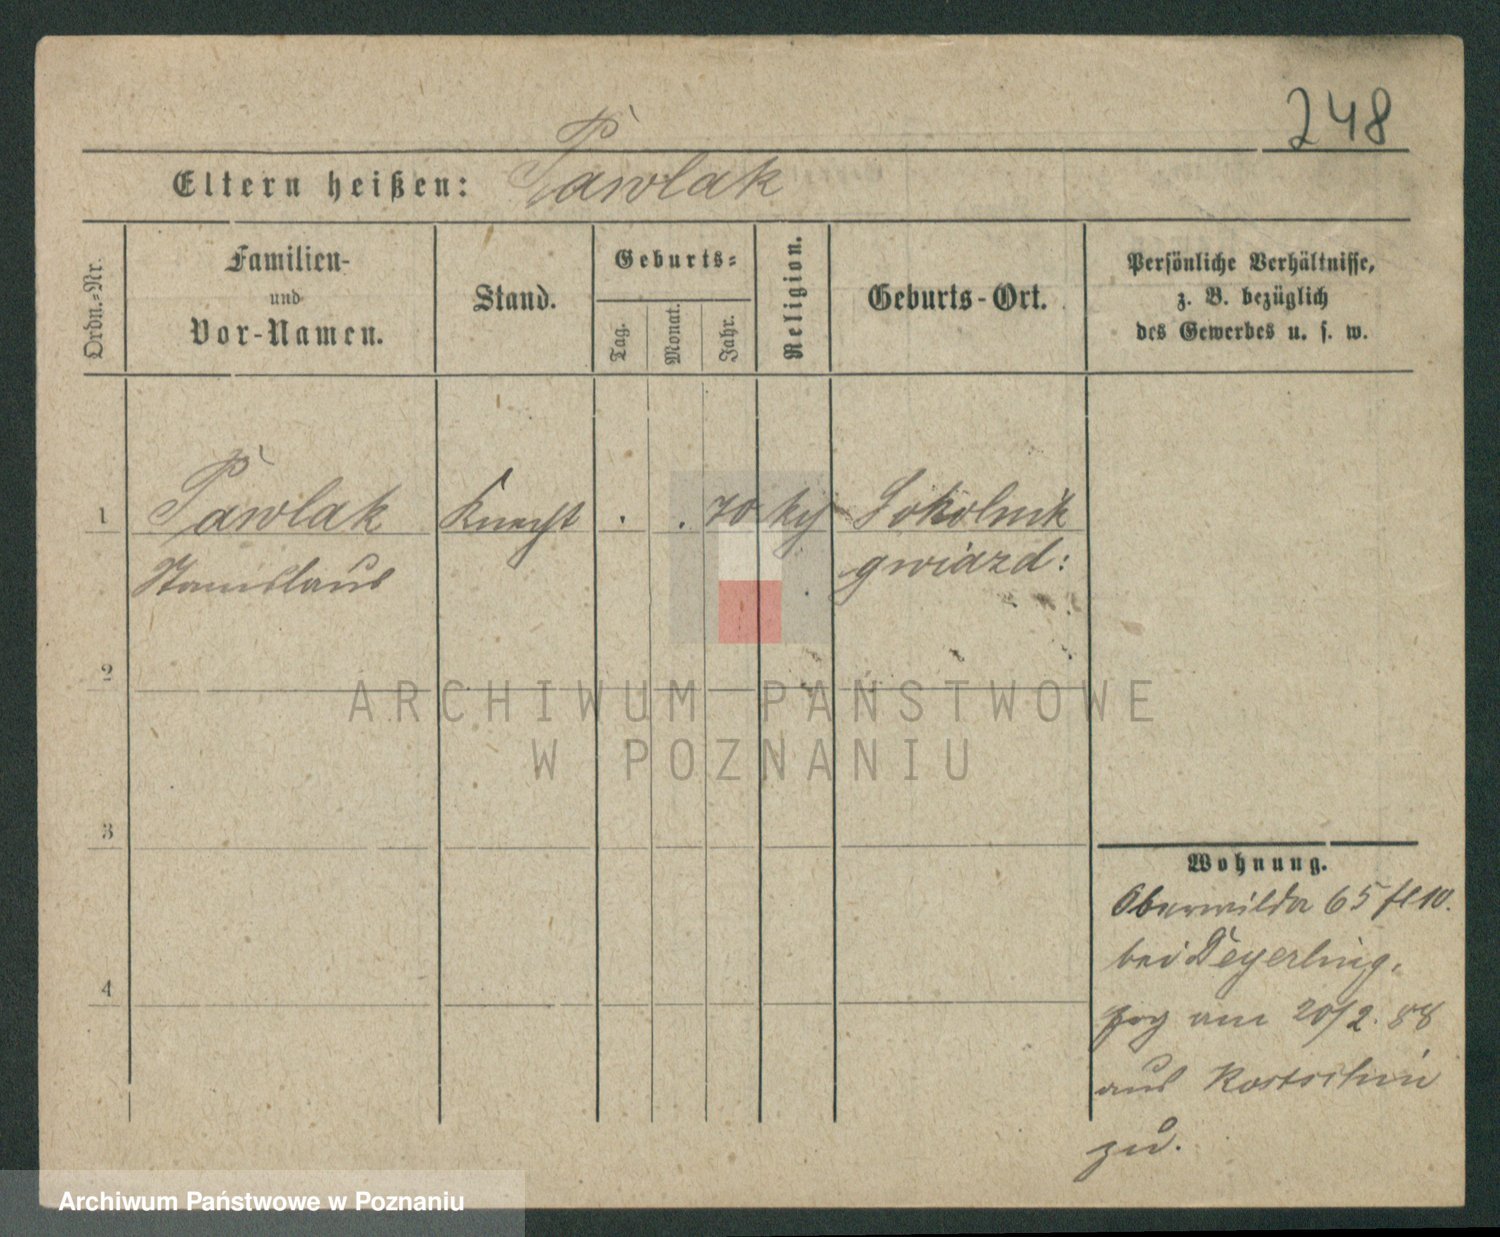 248
Eltern heißen: Pawlak
Ordn.=Nr.
Familien-
und
Vor-Namen.
Stand.
Geburts=
Tag.
Monat.
Jahr.
Religion.
Geburts-Ort.
Persönliche Verhältnisse,
z. B. bezüglich
des Gewerbes u. s. w.
1 Pawlak Knecht . . 70 Sokolnik
Stanislaus gwiazd:
2
ARCHIWUM PAŃSTWOWE
W POZNANIU
3
Wohnung.
Oberwilda 65
bei
4
zog am 20/2. 88
aus Kostschin
zu.
Archiwum Państwowe w Poznaniu